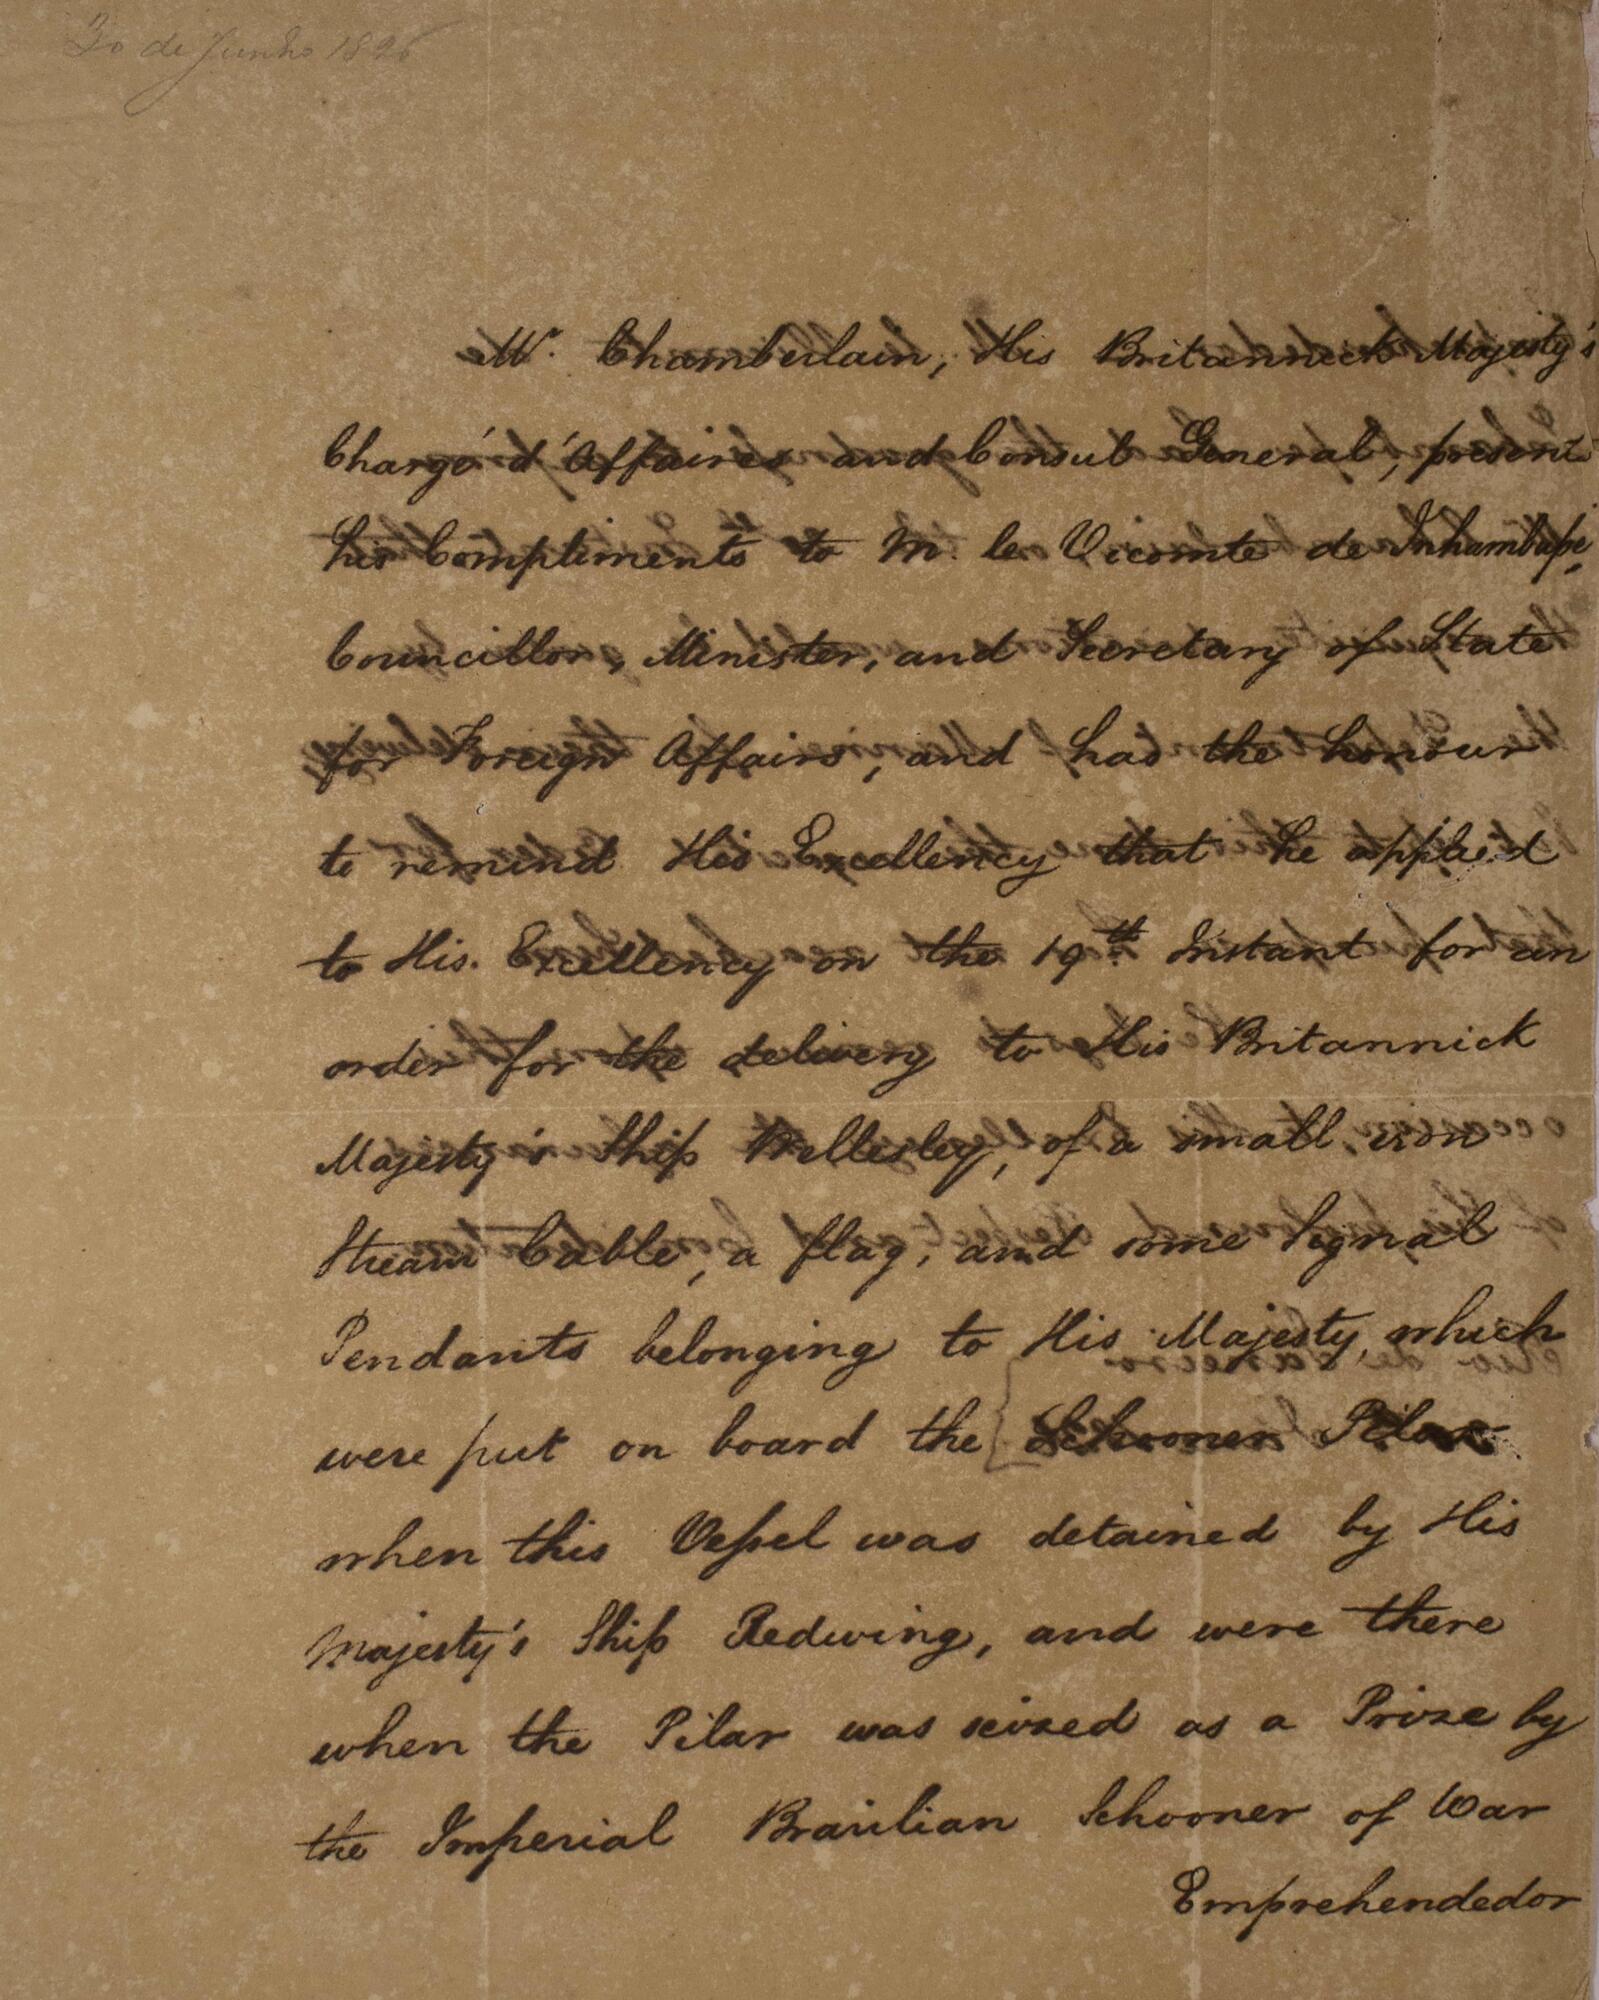 30 de Junho 1826
Mr. Chamberlain, His Britannick Majesty's
Chargé d'Affaires and Consul General, present
his Compliments to M. le Vicomte de Inhambupe,
Councillor, Minister, and Secretary of State
for Foreign Affairs, and has the honour
to remind His Excellency that he applied
to His Excellency on the 19th. Instant for an
order for the delivery to His Britannick
Majesty's Ship Wellesley, of a small iron
Stream Cable, a flag, and some Signal
Pendants belonging to His Majesty, which
were put on board the Schooner Pilar
when this Vessel was detained by His
Majesty's Ship Redwing, and were there
when the Pilar was seized as a Prize by
the Imperial Brazilian Schooner of War
Emprehendedor